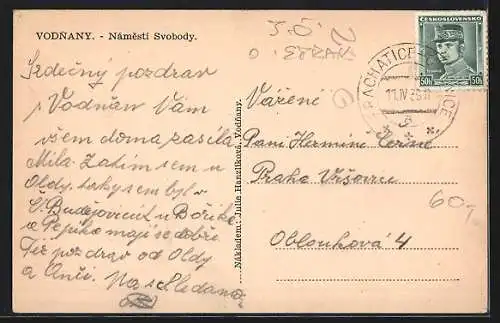 VODŇANY. - Náměstí Svobody.
Srdečný pozdrav
z Vodňan Vám
všem doma zasílá
Mila. Zatím jsem u
Oldy, taky jsem byl v
Č. Budějovicích u Bořiků
a Pepíka mají se dobře
Též pozdrav od Oldy
a Anči. Na shledanou
Nákladem: Julie Hanzlíková, Vodňany.
ČESKOSLOVENSKO
50h 50h
PRACHATICE
11.IV.36
Vážení
Paní Hermína Černá
Praha Vršovice
Oblouková 4
60,-